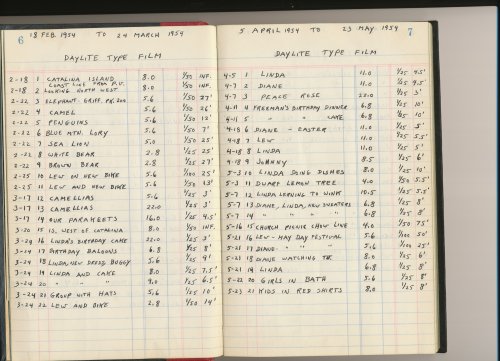 6
18 FEB. 1954 TO 24 MARCH 1954
DAYLITE TYPE FILM
2-18 1 CATALINA ISLAND 8.0 1/50 INF.
COAST LINE FROM P.V.
2-18 2 LOOKING NORTH WEST 8.0 1/50 INF.
2-22 3 ELEPHANT. GRIFF. PK. ZOO 5.6 1/50 27'
2-22 4 CAMEL 5.6 1/50 25'
2-22 5 PENGUINS 5.6 1/50 12'
2-22 6 BLUE MTN. LORY 5.6 1/50 7'
2-22 7 SEA LION 5.0 1/50 25'
2-22 8 WHITE BEAR 2.8 1/25 25'
2-22 9 BROWN BEAR 2.8 1/25 27'
2-25 10 LEW ON NEW BIKE 5.6 1/100 25'
2-25 11 LEW AND NEW BIKE 5.6 1/50 13'
3-17 12 CAMELIAS 5.6 1/25 3'
3-17 13 CAMELIAS 22.0 1/25 3'
3-17 14 OUR PARAKEETS 16.0 1/25 4.5'
3-20 15 IS. WEST OF CATALINA 8.0 1/50 INF.
3-24 16 LINDA'S BIRTHDAY CAKE 22.0 1/25 3'
3-24 17 BIRTHDAY BALOONS 6.8 1/25 8'
3-24 18 LINDA, NEW DRESS, BUGGY 5.6 1/25 9'
3-24 19 LINDA AND CAKE 8.0 1/25 7.5'
3-24 20 " " " 9.0 1/25 6.5'
3-24 21 GROUP WITH HATS 5.6 1/25 10'
3-24 22 LEW AND BIKE 2.8 1/50 14'
5 APRIL 1954 TO 23 MAY 1954
7
DAYLITE TYPE FILM
4-5 1 LINDA 11.0 1/25 4.5'
4-7 2 DIANE 11.0 1/25 5'
4-7 3 PEACE ROSE 22.0 1/25 3'
4-11 4 FREEMAN'S BIRTHDAY DINNER 6.8 1/25 10'
4-11 5 " " CAKE 6.8 1/25
4-18 6 DIANE - EASTER 11.0 1/25 5'
4-18 7 LEW 11.0 1/25 5.5'
4-18 8 LINDA 11.0 1/25 5'
4-18 9 JOHNNY 8.5 1/25 6'
5-3 10 LINDA DOING DISHES 8.0 1/25 10'
5-3 11 DWARF LEMON TREE 4.0 1/50 5.5'
5-7 12 LINDA LERNING TO WINK 10.5 1/25 5.5'
5-7 13 DIANE, LINDA, NEW SWEATERS 6.8 1/25 8'
5-7 14 " " " " 6.8 1/25 8'
5-16 15 CHURCH PICNIC SHOW LIVE 4.0 1/50 75'
5-21 16 LEW - MAY DAY FESTIVAL 5.6 1/100 50'
5-21 17 DIANE " " " 5.6 1/100 25'
5-21 18 DIANE WATCHING TV 8.0 1/25 6'
5-21 19 LINDA 6.8 1/25 8'
5-22 20 GIRLS IN BATH 5.6 1/25 8'
5-23 21 KIDS IN RED SHIRTS 8.0 1/25 8'